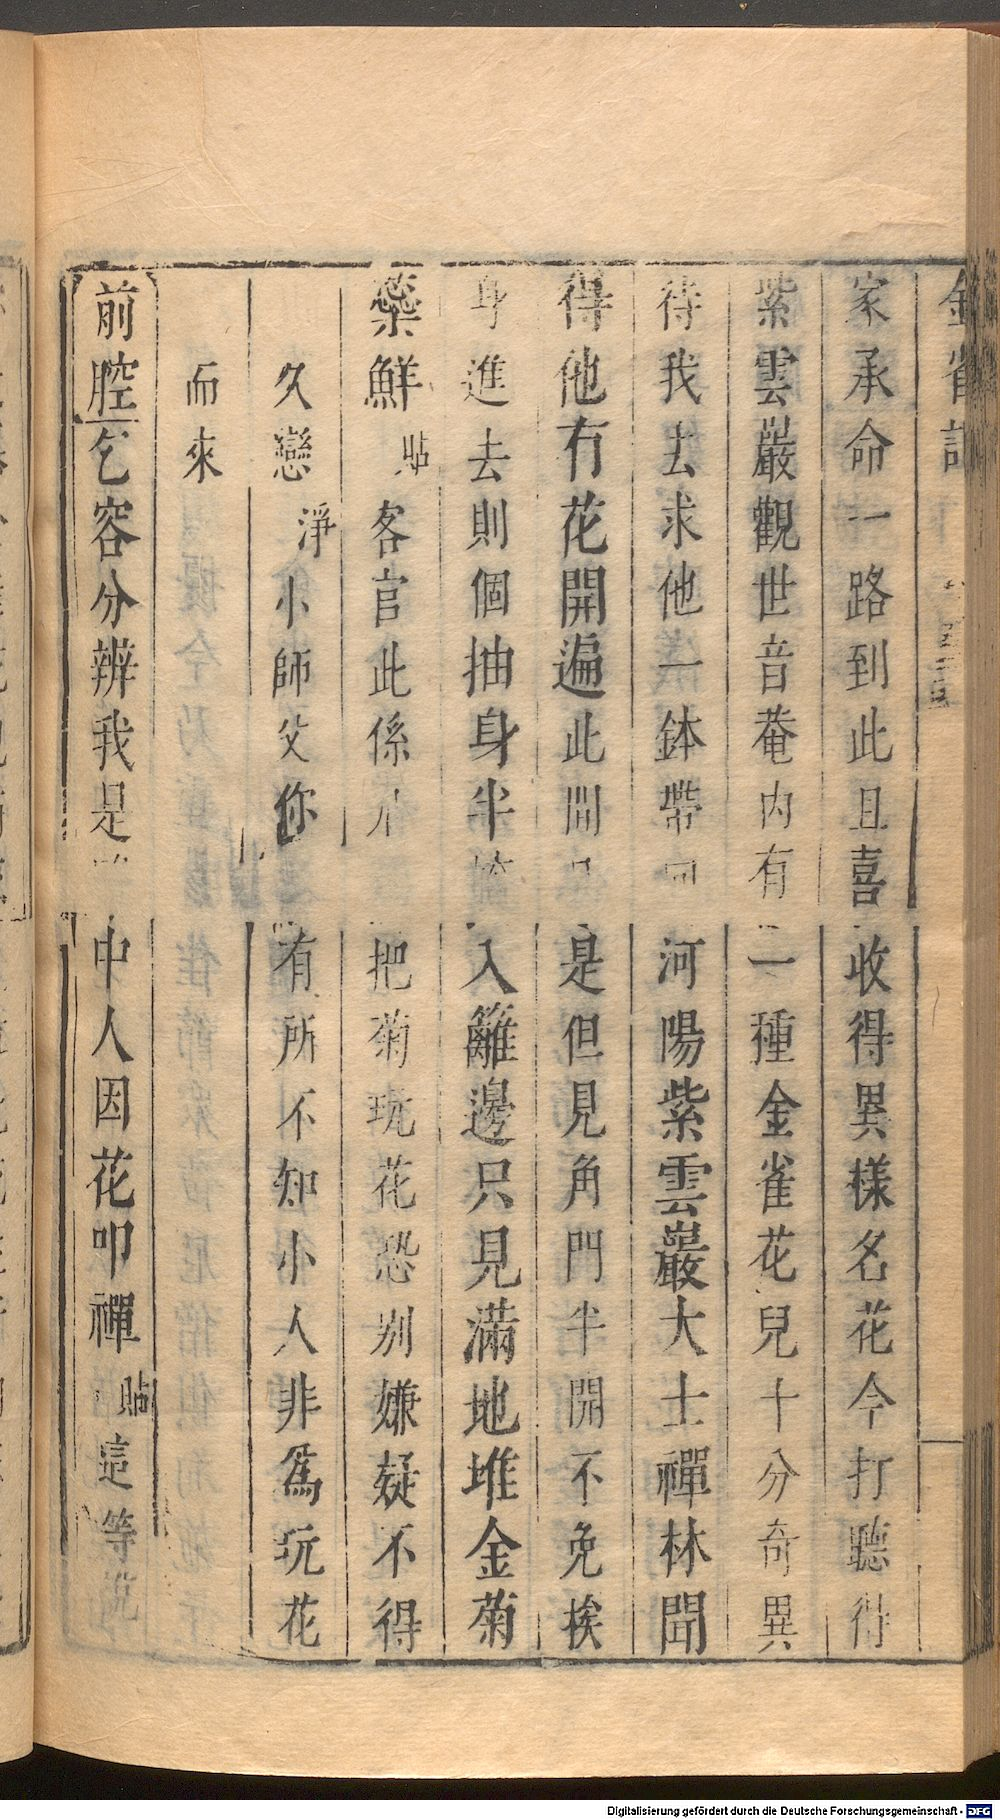 金雀記
家承命一路到此且喜收得異樣名花今打聽得
紫雲巖觀世音菴内有一種金雀花兒十分奇異
待我去求他一鉢帶回河陽紫雲巖大士禪林聞
得他有花開遍此間是但見角門半開不免挨
身進去則個抽身半入籬邊只見滿地堆金菊
蘂鮮貼客官此係把菊玩花恐别嫌疑不得
久戀淨小師父你有所不知小人非爲玩花
而來
前腔乞容分辨我是中人因花叩禪貼這等説
Digitalisierung gefördert durch die Deutsche Forschungsgemeinschaft - DFG